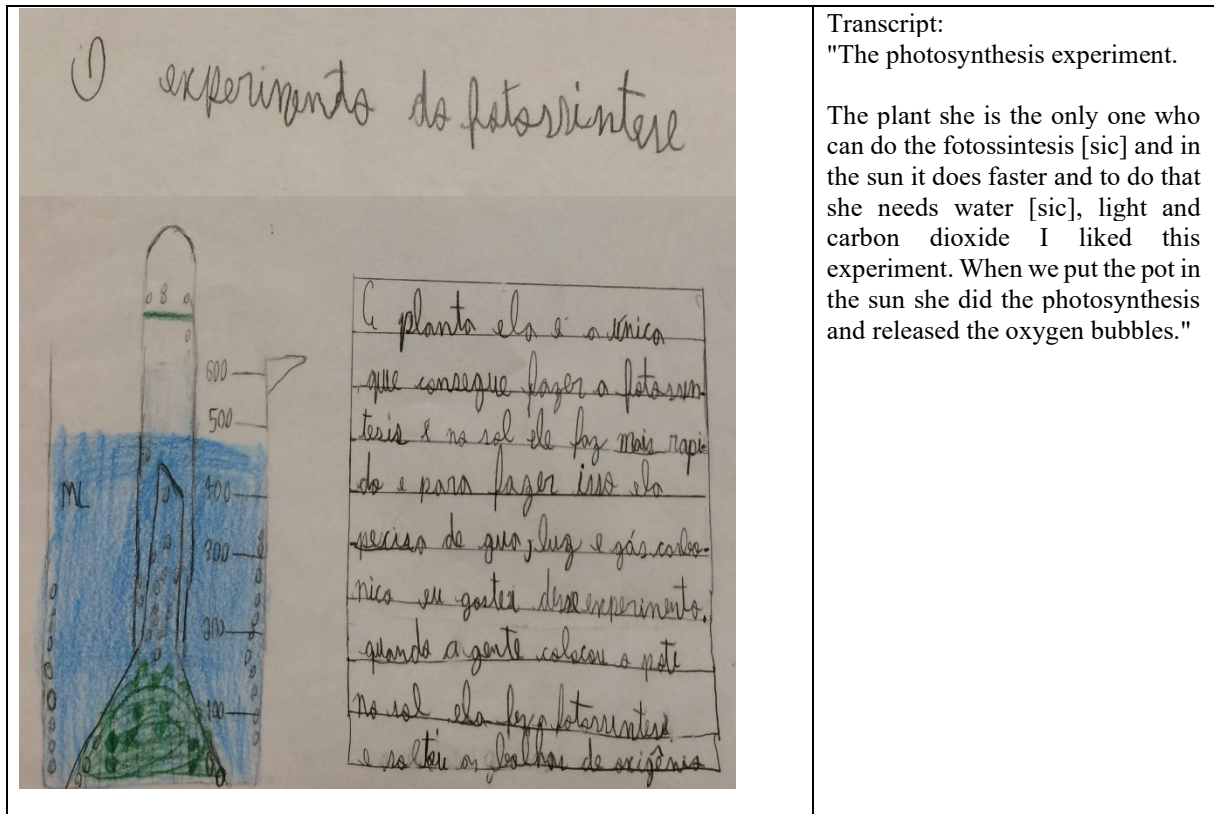 ① experimento do fotossintese
8
600
500
ML
400
300
200
100
A planta ela é a única
que consegue fazer a fotossin-
tesis e no sol ele faz mais rapi-
do e para fazer isso ela
peciso de gua, luz e gás carbo-
nico eu gostei desse experimento.
quando a gente colocou o pote
no sol ela fez a fotossintese
e soltou as bolhas de oxigênio
Transcript:
"The photosynthesis experiment.
The plant she is the only one who
can do the fotossintesis [sic] and in
the sun it does faster and to do that
she needs water [sic], light and
carbon dioxide I liked this
experiment. When we put the pot in
the sun she did the photosynthesis
and released the oxygen bubbles."